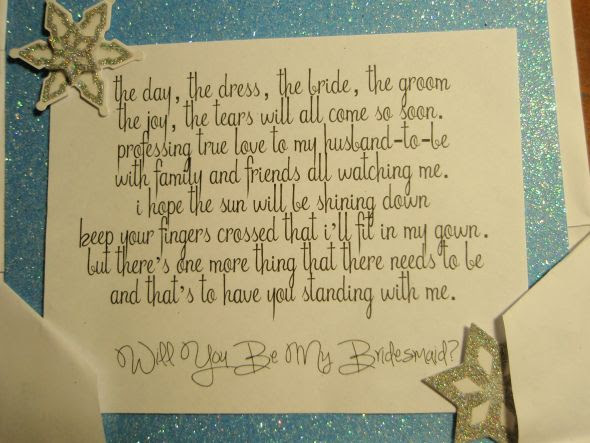 the day, the dress, the bride, the groom
the joy, the tears will all come so soon.
professing true love to my husband-to-be
with family and friends all watching me.
i hope the sun will be shining down
keep your fingers crossed that i'll fit in my gown.
but there's one more thing that there needs to be
and that's to have you standing with me.
Will You Be My Bridesmaid?